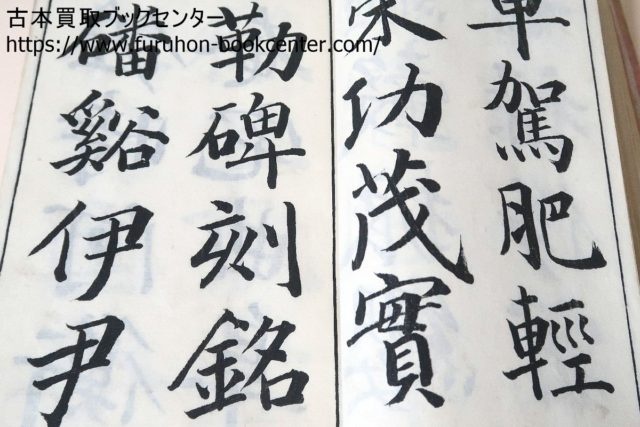 古本買取ブックセンター
https://www.furuhon-bookcenter.com/
車駕肥輕
策功茂實
勒碑刻銘
磻谿伊尹